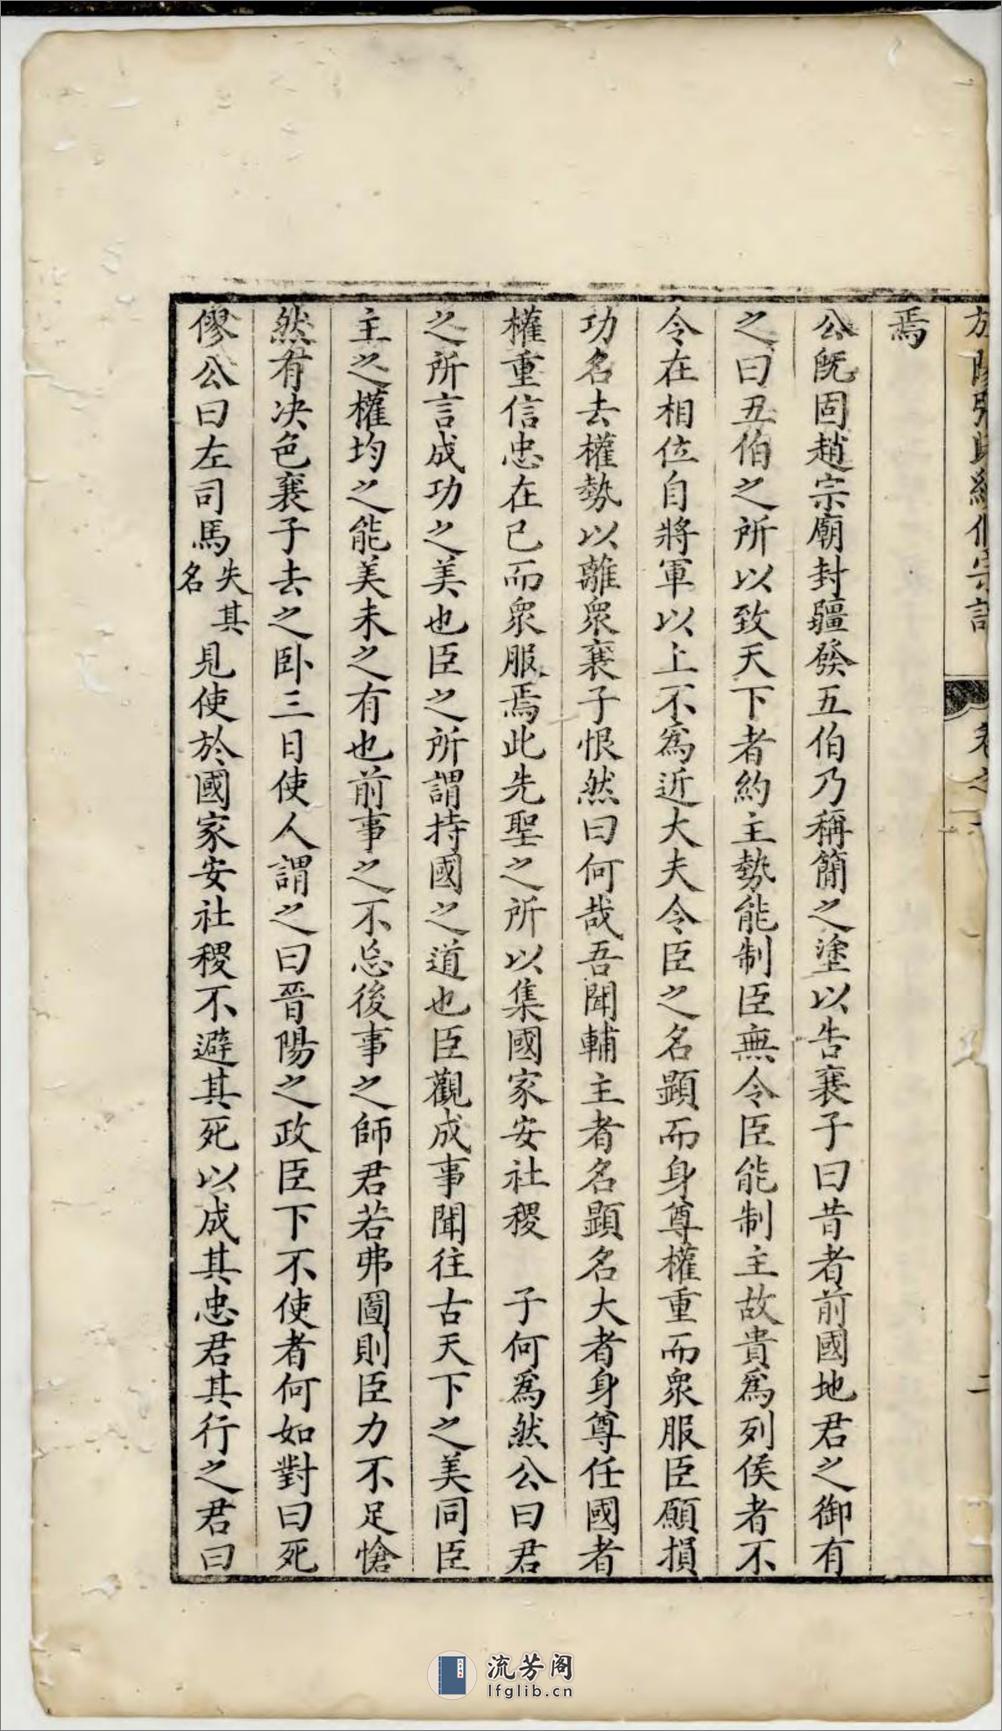 焉
公既固趙宗廟封疆發五伯乃稱簡之塗以告襄子曰昔者前國地君之御有
之曰五伯之所以致天下者約主勢能制臣無令臣能制主故貴爲列侯者不
令在相位自將軍以上不爲近大夫令臣之名顯而身尊權重而衆服臣願損
功名去權勢以離衆襄子恨然曰何哉吾聞輔主者名顯名大者身尊任國者
權重信忠在已而衆服焉此先聖之所以集國家安社稷 子何爲然公曰君
之所言成功之美也臣之所謂持國之道也臣觀成事聞往古天下之美同臣
主之權均之能美未之有也前事之不忘後事之師君若弗圖則臣力不足愴
然有决色襄子去之卧三日使人謂之曰晉陽之政臣下不使者何如對曰死
僇公曰左司馬失其名見使於國家安社稷不避其死以成其忠君其行之君曰
流芳阁
lfglib.cn